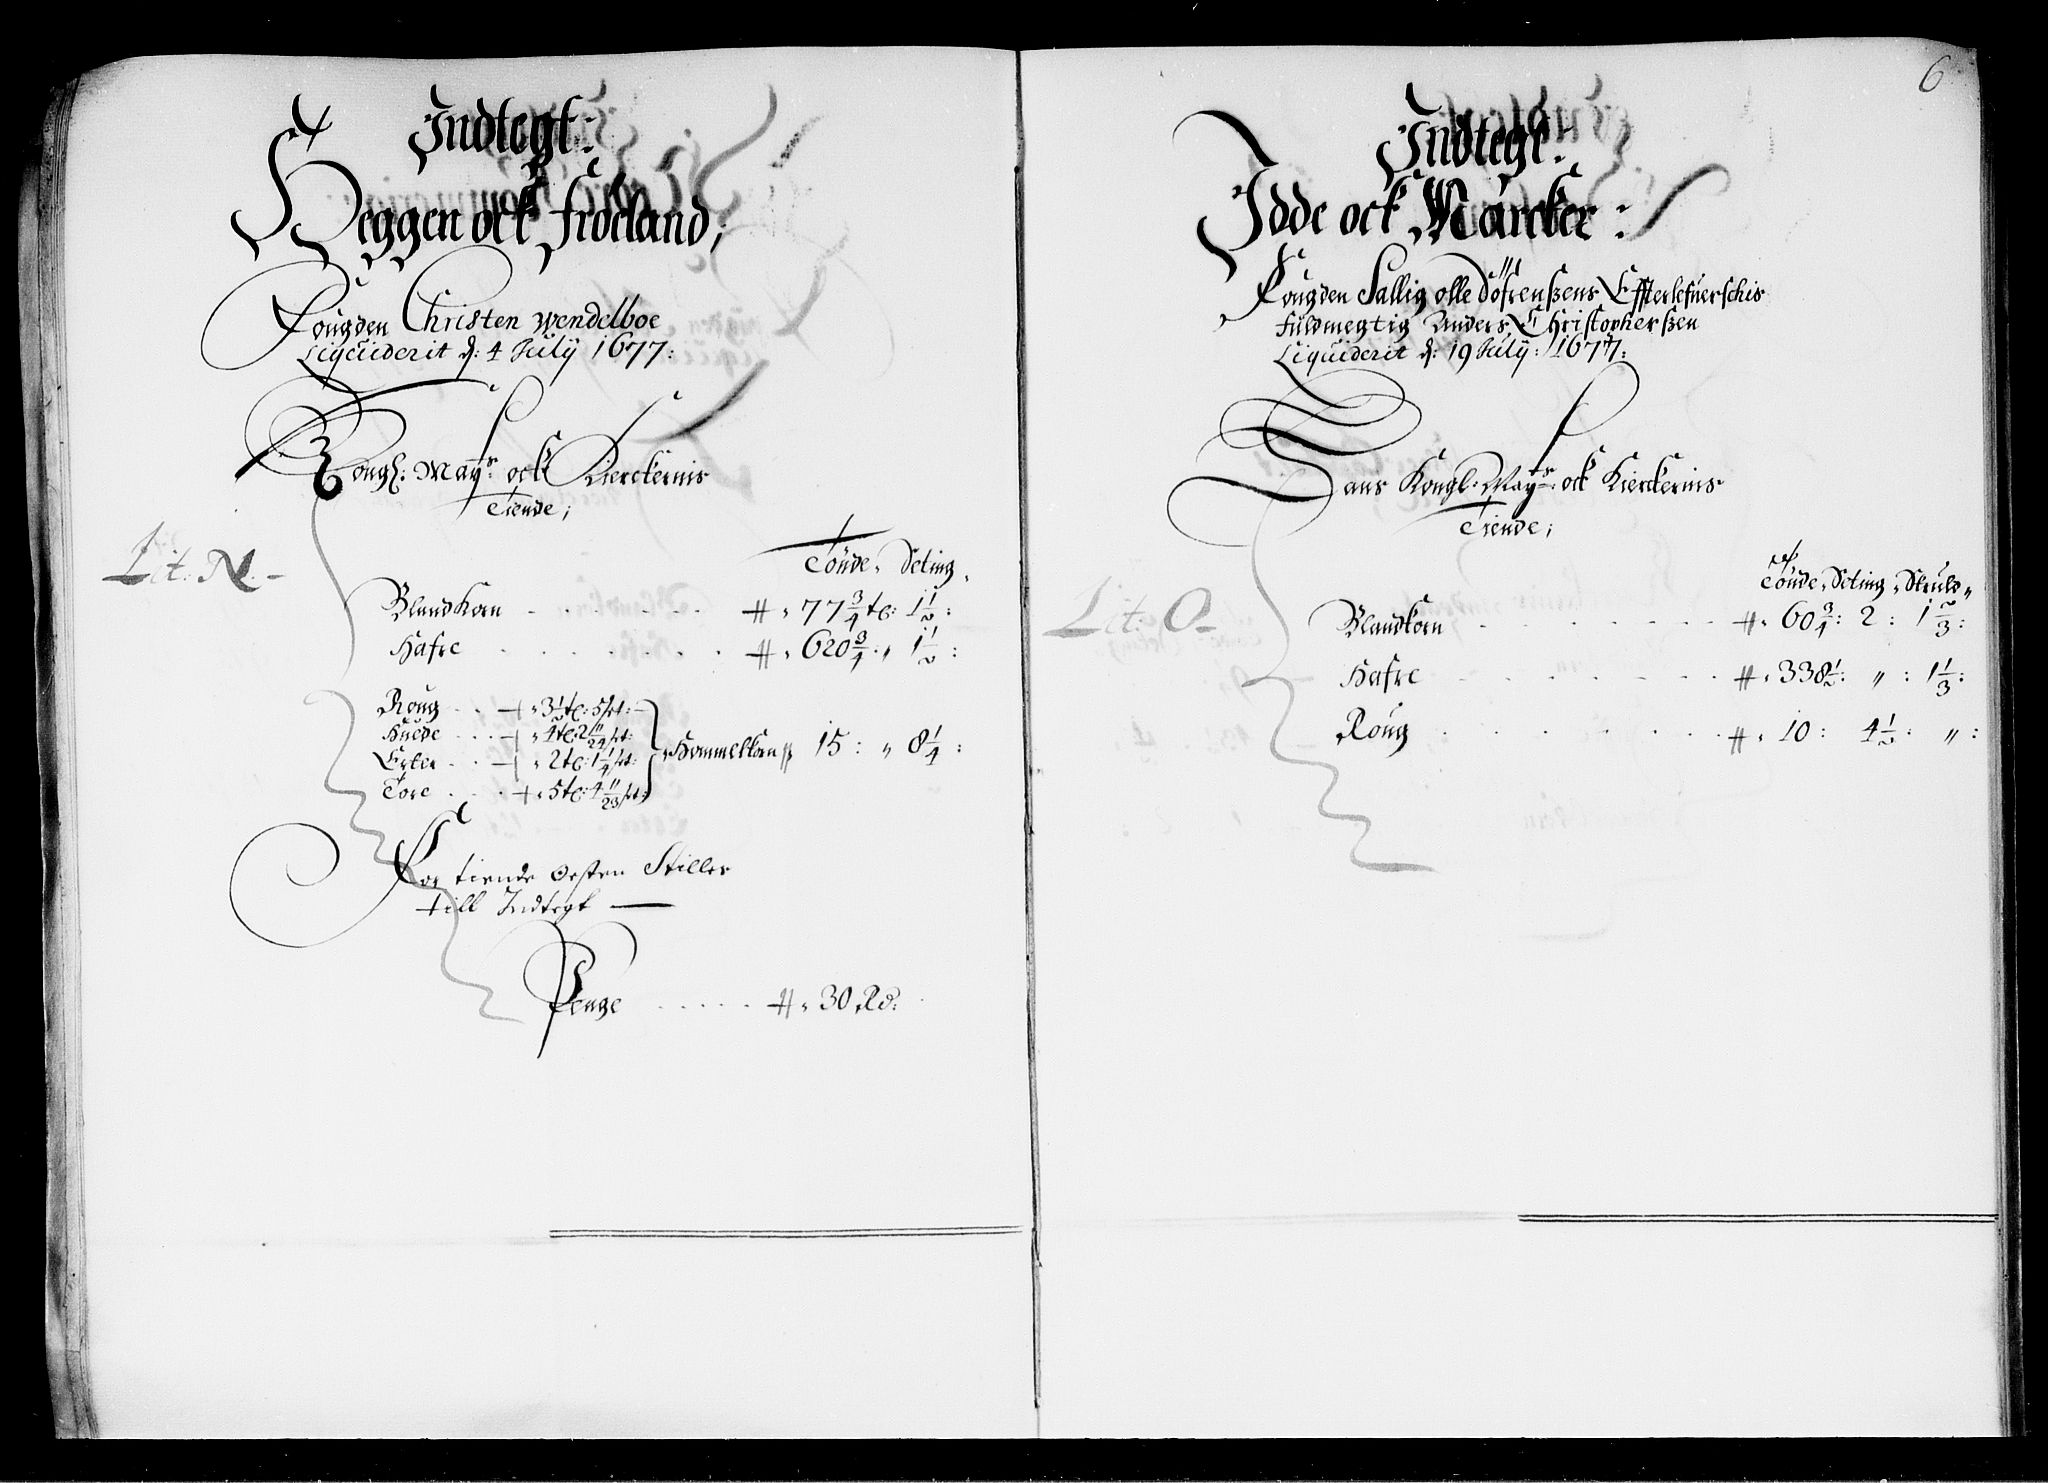 Indtegt:
Heggen ock Frøeland;
Fougden Christen Wendelboe
Liquiderit d: 4 July 1677:
Kongl: Mayts ock Kierckernis
Tiende;
Tönde, Seting,
Lit: N: -
Blandkorn - - - - - # „ 77 3/4 tl: 1 1/2 :
Hafre - - - - - - - # „ 620 3/4 : „ 1 1/2 :
Roug - - - „ 3 1/2 tl: 5 set:
Huede - - - „ 4 tl: 2 11/24 set:
Erter - - - „ 2 tl: 1 1/4 set:
Tore - - - „ 5 tl: 4 11/23 set:
Hommelkorn # 15 : „ 8 1/4 :
For tiende Oesten Stilles
till Indtegt —
Penge - - - - - # „ 30 Rd:
6
Indtegt:
Idde ock Marcker:
Fougden Sallig olle Söfrenßens Effterlefuerschis
fuldmegtig Anders Christopherßen
Liquiderit d: 19 July: 1677:
Hans Kongl: Mayts ock Kierckernis
Tiende;
Tönde, Seting, Skuld„
Lit: O -
Blandkorn - - - - - - # „ 60 3/4 : 2 : 1 2/3 :
Hafre - - - - - - - # „ 338 1/2 : „ : 1 1/3 :
Roug - - - - - - - # „ 10 : 4 1/2 : „ :